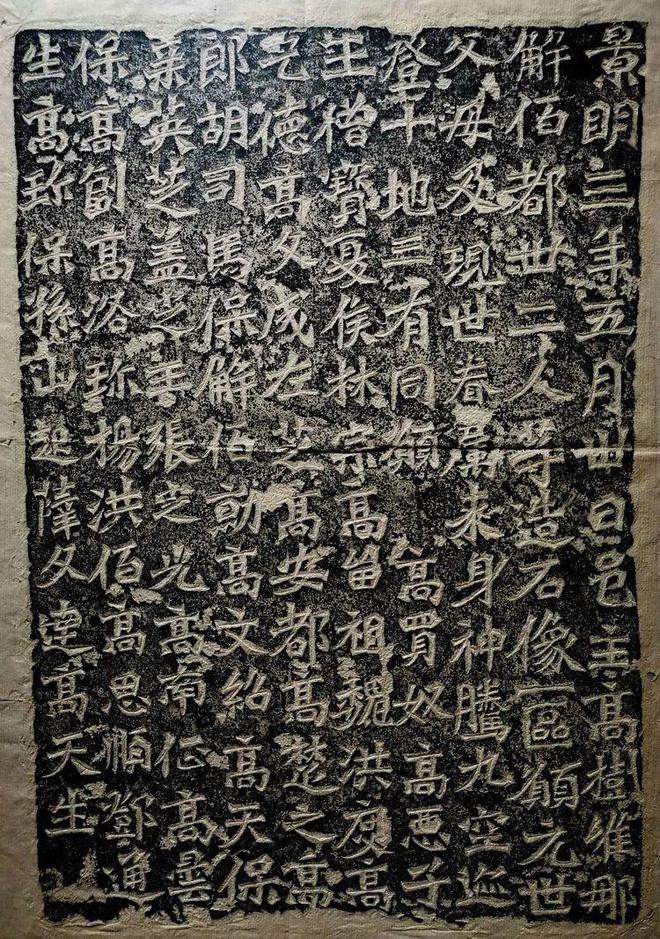 景明三年五月卅日邑主高樹唯那
解佰都卅二人等造石像一區願元世
父母及現世眷屬来身神騰九空迹
登十地三有同願高買奴高悪子
王僧寶夏侯林宗高留祖魏洪度高
乞德高文成左芝高安都高楚之高
郎胡司馬保解佰勍高文紹高天保
英芝盖之王張芝光高南征高曇
保高副高洛珎楊洪佰高思順鄧通
生高珎保孫山起薛文達高天生